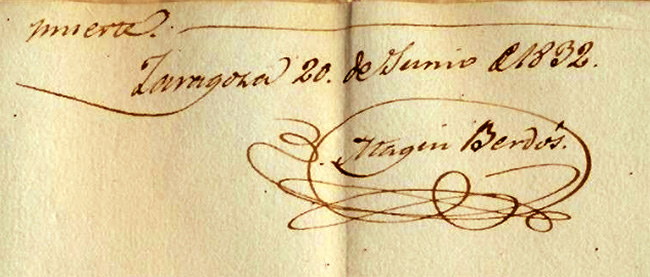 muerte.
Zaragoza 20. de Junio d 1832.
Magin Berdós.